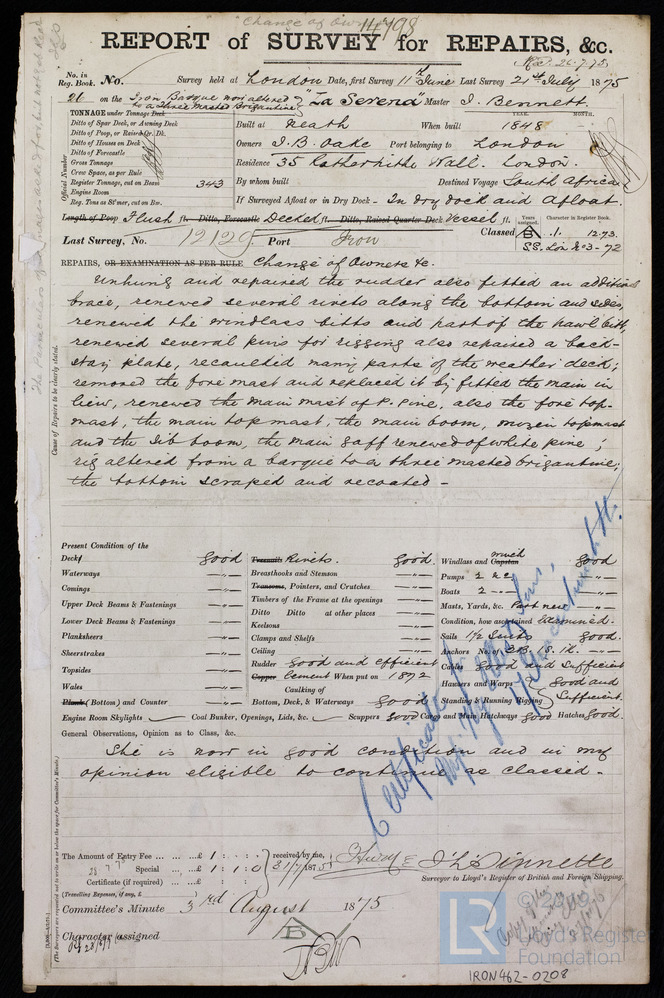 Change of Own
14798
REPORT of SURVEY for REPAIRS, &c.
Rec. 26.7.75
No. in Reg. Book. No. Survey held at London Date, first Survey 11th June Last Survey 21st July 1875
26 on the Iron Barque now altered to a Three Masted Brigantine "La Serena" Master J. Bennett.
TONNAGE under Tonnage Deck
Ditto of Spar Deck, or Awning Deck
Ditto of Poop, or Raised Qr. Dk.
Ditto of Houses on Deck
Ditto of Forecastle
Gross Tonnage
Crew Space, as per Rule
Register Tonnage, cut on Beam 343
Engine Room
Reg. Tons as St'mer, cut on Bm.
Official Number
YEAR. MONTH.
Built at Neath When built 1848
Owners J. B. Oake Port belonging to London
Residence 35 Rotherhithe Wall. London.
By whom built Destined Voyage South Africa
If Surveyed Afloat or in Dry Dock - In dry dock and Afloat.
Length of Poop Flush ft. Ditto, Forecastle Decked ft. Ditto, Raised Quarter Deck Vessel ft.
Years assigned. Character in Register Book.
Classed B .1. 12.73.
SS. Lon. No 3-72
Last Survey, No. 12129 Port Iron
REPAIRS, OR EXAMINATION AS PER RULE Change of Owners &c.
Unhung and repaired the rudder also fitted an additional
brace, renewed several rivets along the bottom and sides,
renewed the windlass bitts and part of the pawl bitt,
renewed several pins for rigging also repaired a back-
stay plate, recaulked many parts of the weather deck;
removed the fore mast and replaced it by fitted the main in
lieu, renewed the main mast of P. Pine, also the fore top-
mast, the main top mast, the main boom, mizen topmast
and the Jib boom, the main gaff renewed of white pine;
rig altered from a barque to a three masted brigantine;
the bottom scraped and recoated -
Cause of Repairs to be clearly stated.
Present Condition of the
Deck good
Waterways -"-
Comings -"-
Upper Deck Beams & Fastenings -"-
Lower Deck Beams & Fastenings -"-
Planksheers -"-
Sheerstrakes -"-
Topsides -"-
Wales -"-
Plank (Bottom) and Counter -"-
Treenails Rivets. good
Breasthooks and Stemson -"-
Transoms, Pointers, and Crutches -"-
Timbers of the Frame at the openings -"-
Ditto Ditto at other places -"-
Keelsons -"-
Clamps and Shelfs -"-
Ceiling -"-
Rudder good and efficient
Copper Cement When put on 1872
Caulking of
Bottom, Deck, & Waterways good
Windlass and Capstan winch good
Pumps 2 -"-
Boats 2 -"-
Masts, Yards, &c. Part new -"-
Condition, how ascertained Examined.
Sails 1½ Suits good.
Anchors No. of 3 B. 1 S. 1 K. -"-
Cables good and Sufficient
Hawsers and Warps good and
Standing & Running Rigging Sufficient.
Engine Room Skylights Coal Bunker, Openings, Lids, &c. Scuppers good Cargo and Main Hatchways good Hatches good.
General Observations, Opinion as to Class, &c.
She is now in good condition and in my
opinion eligible to continue as classed -
The Amount of Entry Fee ... £ 1 : : received by me,
Special ... £ 1 : 1 : 0 31/7/1875
Certificate (if required) ... £ : :
(Travelling Expenses, if any, £
J. L. Sinnette
Surveyor to Lloyd's Register of British and Foreign Shipping.
Committee's Minute 3rd August 1875
Character assigned
B
LR
Lloyd's Register
Foundation
IRON462-0208